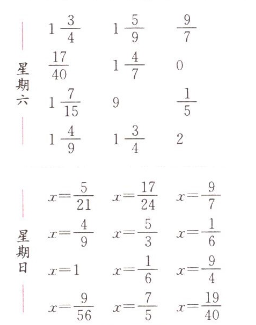 星期六
1 3/4 1 5/9 9/7
17/40 1 4/7 0
1 7/15 9 1/5
1 4/9 1 3/4 2
星期日
x=5/21 x=17/24 x=9/7
x=4/9 x=5/3 x=1/6
x=1 x=1/6 x=9/4
x=9/56 x=7/5 x=19/40